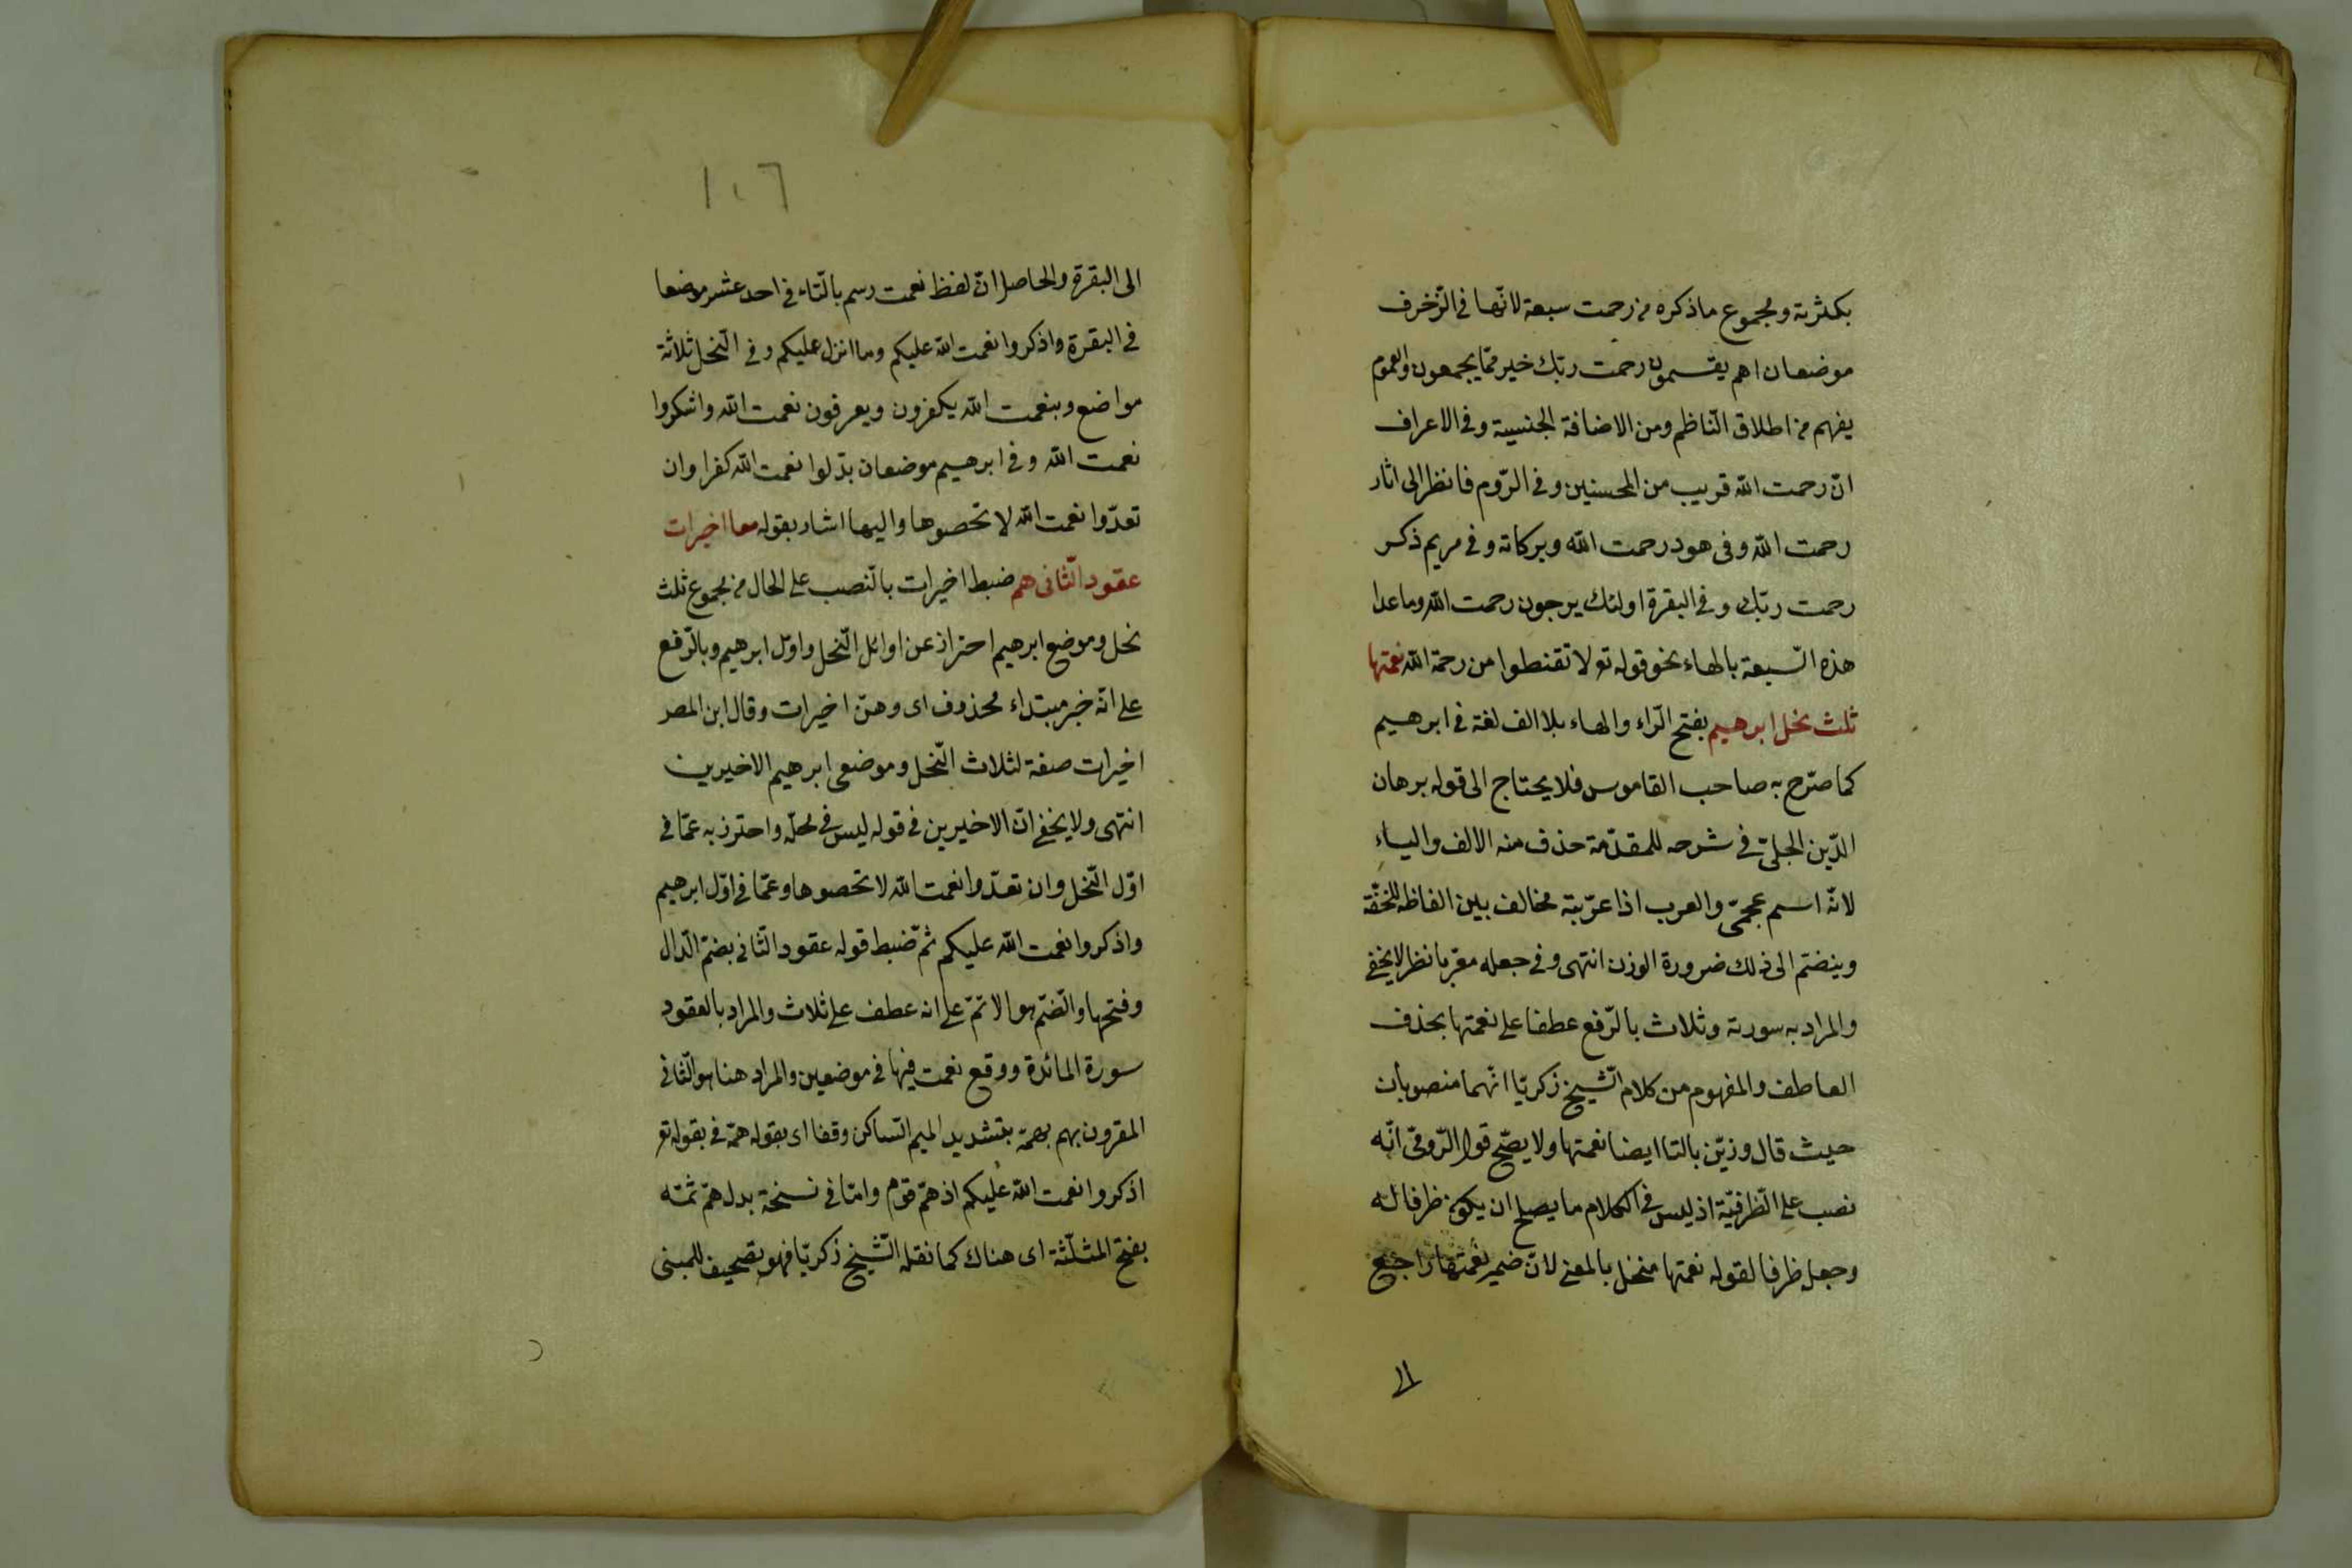 بكثرته ومجموع ما ذكره من رحمت سبعة لانّها في الزّخرف
موضعان اهم يقسمون رحمت ربّك خير ممّا يجمعون والعموم
يفهم من اطلاق النّاظم ومن الاضافة الجنسية وفي الاعراف
انّ رحمت اللّه قريب من المحسنين وفي الرّوم فانظر الى اثار
رحمت اللّه وفي هود رحمت اللّه وبركاته وفي مريم ذكر
رحمت ربّك وفي البقرة اولئك يرجون رحمت اللّه وما عدا
هذه السّبعة بالهاء نحو قوله تع لا تقنطوا من رحمة اللّه نعمتها
ثلث نحل ابرهيم بفتح الرّاء والهاء بلا الف لغة في ابرهيم
كما صرّح به صاحب القاموس فلا يحتاج الى قوله برهان
الدّين الجليّ في شرحه للمقدّمة حذف منه الالف والياء
لانّه اسم عجميّ والعرب اذا عرّبته مخالف بين الفاظه للخفّة
وينضمّ الى ذلك ضرورة الوزن انتهى وفي جعله معرّبا نظر لا يخفى
والمراد به سورته وثلاث بالرّفع عطفا على نعمتها بحذف
العاطف والمفهوم من كلام الشّيخ زكريّا انّهما منصوبان
حيث قال وزيّن بالتا ايضا نعمتها ولا يصّح قول الرّوميّ انّه
نصب على الظّرفيّة اذ ليس في الكلام ما يصلح ان يكون ظرفا له
وجعله ظرفا لقوله نعمتها منخل بالمعنى لانّ ضمير نعمتها راجع
الى
١٠٦
الى البقرة والحاصل انّ لفظ نعمت رسم بالتّاء في احد عشر موضعا
في البقرة واذكروا نعمت اللّه عليكم وما انزل عليكم وفي النّحل ثلاثة
مواضع وبنعمت اللّه يكفرون ويعرفون نعمت اللّه واشكروا
نعمت اللّه وفي ابرهيم موضعان بدّلوا نعمت اللّه كفرا وان
تعدّوا نعمت اللّه لا تحصوها واليها اشار بقوله معا اخيرات
عقود الثّاني هم ضبط اخيرات بالنّصب على الحال من مجموع ثلث
نحل وموضع ابرهيم احتراز عن اوائل النّحل واوّل ابرهيم وبالرّفع
على انّه خبر مبتداء محذوف اى وهنّ اخيرات وقال ابن المصر
اخيرات صفة لثلاث النّحل وموضعي ابرهيم الاخيرين
انتهى ولا يخفى انّ الاخيرين في قوله ليس في محلّه واحترز به عمّا في
اوّل النّحل وان تعدّوا نعمت اللّه لا تحصوها وعمّا في اوّل ابرهيم
واذكروا نعمت اللّه عليكم ثمّ ضبط قوله عقود الثّاني بضمّ الدّال
وفتحها والضّم هو الاتمّ على انه عطف على ثلاث والمراد بالعقود
سورة المائدة ووقع نعمت فيها في موضعين والمراد هنا هو الثّاني
المقرون بهم بهمّ بتشديد الميم السّاكن وقفا اى بقوله همّ في بقوله تع
اذكروا نعمت اللّه عليكم اذ همّ قوم وامّا في نسخة بدل همّ ثمّه
بفتح المثلّثة اى هناك كما نقله الشّيخ زكريّا فهو تصحيف للمبنى